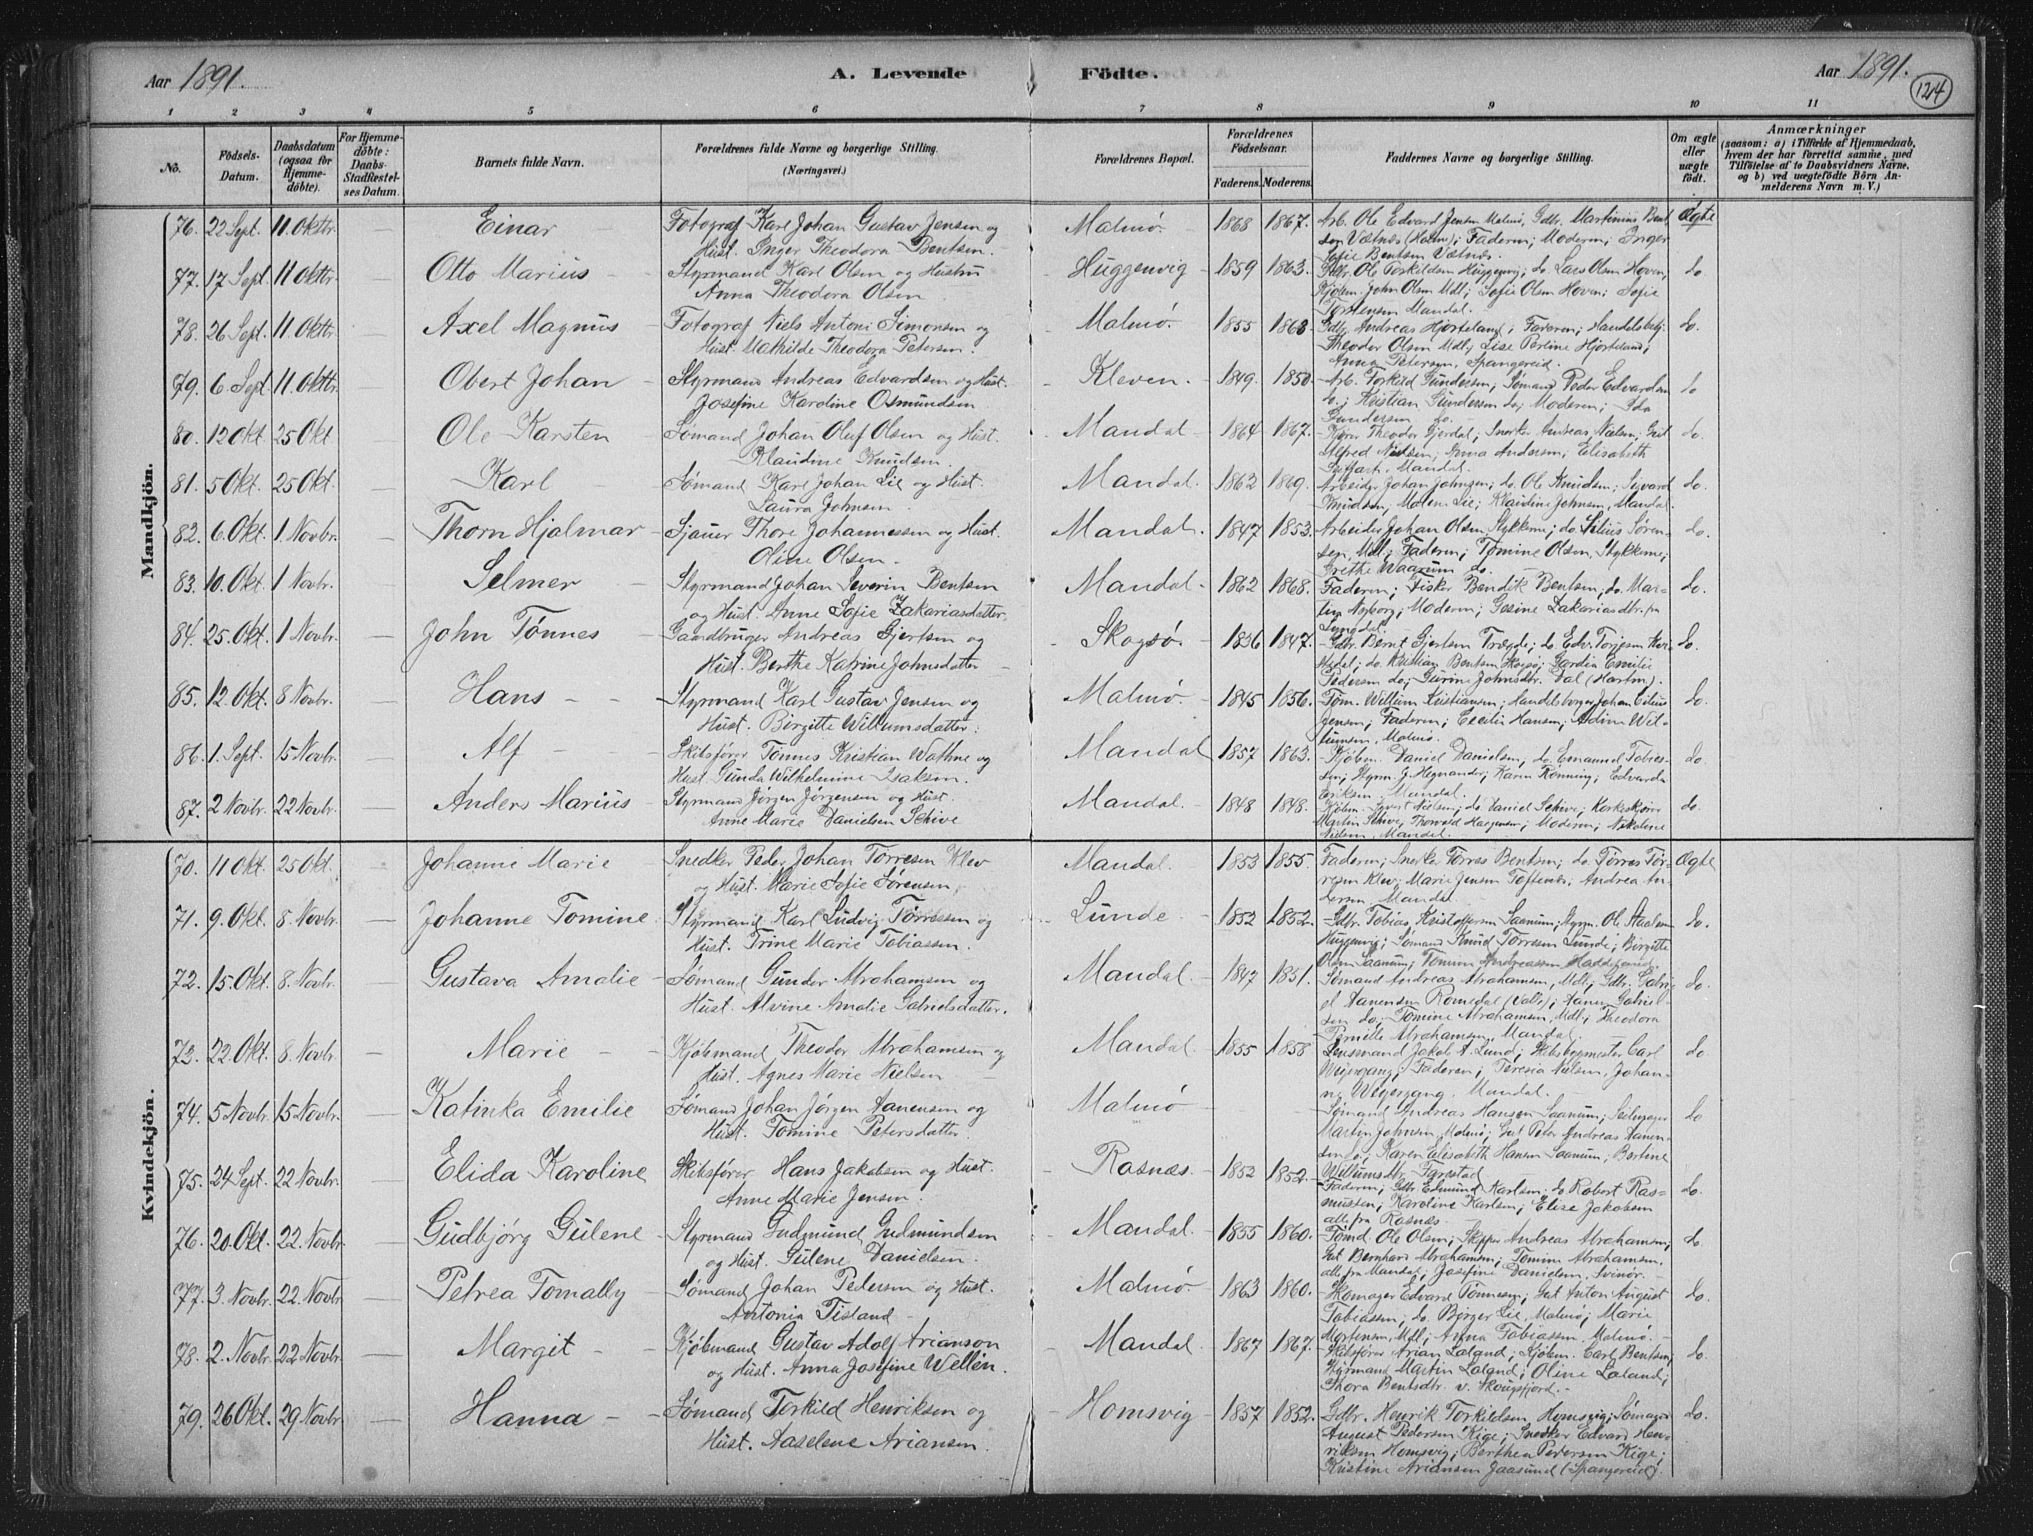 Aar 1891. A. Levende Födte. Aar 1891.
124
1 2 3 4 5 6 7 8 9 10 11
No. Födsels-Datum. Daabsdatum (ogsaa for Hjemme-döbte). For Hjemme-döbte: Daabs-Stadfæstel-ses Datum. Barnets fulde Navn. Forældrenes fulde Navne og borgerlige Stilling. (Næringsvei.) Forældrenes Bopæl. Forældrenes Födselsaar. Faderens. Moderens. Faddernes Navne og borgerlige Stilling. Om ægte eller uægte födt. Anmærkninger (saasom: a) i Tilfælde af Hjemmedaab, hvem der har forrettet samme, med Tilföielse af to Daabsvidners Navne, og b) ved uægtefödte Börn An-melderens Navn m. V.)
Mandkjön.
76. 22 Sept. 11 Oktbr. — Einar — Fotograf Karl Johan Gustav Jensen og Malmø. 1868 1867. Arb. Ole Edvard Jensen Malmø, Gdbr. Martinius Bent Ægte
Hust. Inger Theodora Bentsen. sen Vætnæs (Holm); Faderen; Moderen; Inger
Sofie Bentsen Vætnæs.
77. 17 Sept. 11 Oktbr. — Otto Marius — Styrmand Karl Olsen og Hustru Huggenvig 1859 1863. Gdbr. Ole Torkildsen Huggenvig; do. Lars Olsen Hoven, do.
Anna Theodora Olsen. Kjøbm. John Olsen Mdl; Sofie Olsen Hoven; Sofie
Torstensen Mandal.
78. 26 Sept. 11 Oktbr. — Axel Magnus — Fotograf Niels Antoni Simonsen og Malmø. 1855 1863 Gdbr. Andreas Hjorteland; Faderen; Handelsbetj. do.
Hust. Mathilde Theodora Petersen. Theodor Olsen Mdl; Lise Perline Hjorteland;
Anna Petersen, Spangereid.
79. 6 Sept. 11 Oktbr. — Obert Johan — Styrmand Andreas Edvardsen og Hust. Kleven. 1849. 1850. Arb. Torkild Gundersen; Sømand Peder Edvardsen do
Josefine Karoline Osmundsen do.; Kristian Gundersen do; Moderen; Ida
Gundersen do.
80. 12 Okt. 25 Okt — Ole Karsten — Sømand Johan Oluf Olsen og Hust. Mandal 1864 1867. Theodor Gjerdal; Snedker Andreas Nielsen; Gut do.
Klaudine Knudsen. Alfred Nielsen; Anna Andersen; Elisabeth
Mandal.
81. 5 Okt. 25 Okt. — Karl — Sømand Karl Johan Lie og Hust. Mandal. 1862 1869. Arbeider Johan Johnsen; do. Ole Knudsen; Sigvard do.
Laura Johnsen. Knudsen, Malene Lie; Klaudine Johnsen, Mandal.
82. 6. Okt. 1 Novbr. — Thorn Hjalmar — Sjauer Thore Johannessen og Hust. Mandal. 1847 1853. Arbeider Johan Olsen Stykkene; do. Silius Søren- do.
Oline Olsen. sen, Mdl; Faderen; Tomine Olsen, Stykkene;
Grethe Waarum do.
83. 10. Okt. 1 Novbr. — Selmer — Styrmand Johan Severin Bentsen Mandal. 1862 1868. Faderen; Fisker Bendik Bentsen, do. Mar- do.
og Hust. Anne Sofie Zakariasdatter. tin Nyborg; Moderen; Gesine Zakariasdtr. fra
Lyngdal.
84. 25. Okt. 1 Novbr. — John Tønnes — Gaardbruger Andreas Gjertsen og Skogsø. 1836 1847. Gdbr. Bernt Gjertsen Trægde; do. Edv. Torjesen do.
Hust. Berthe Katrine Johnsdatter do. Kristian Bentsen Skogsø; Gardia Emilie
Pedersen do; Gurine Johnsdtr. Dal (Hartm).
85. 12. Okt. 8 Novbr. — Hans — Styrmand Karl Gustav Jensen og Malmø. 1845 1856. Tøm. Willum Kristiansen; Handelsborger Johan Silius do.
Hust. Birgitte Willumsdatter. Jensen; Faderen; Cecilie Hansen; Adine Wil-
lumsen, Malmø.
86. 1. Sept. 15 Novbr. — Alf — Skibsfører Tønnes Kristian Wathne og Mandal 1857 1863. Kjøbm. Daniel Danielsen, do. Emanuel Tobias- do.
Hust. Gunda Wilhelmine Isaksen. sen; Styrm. G. Hegnander; Karen Rønning; Edvarda
Eriksen Mandal.
87. 2 Novbr. 22 Novbr. — Anders Marius — Styrmand Jørgen Jørgensen og Hust. Mandal. 1848 1848. Kjøbm. Nielsen; do. Daniel Schive; Korkeskjær do.
Anne Marie Danielsen Schive Martin Schive; Thorvald Haagensen; Moderen; Nikoline
Nielsen, Mandal.
Kvindekjön.
70. 11 Okt. 25 Okt. — Johanne Marie — Snedker Peder Johan Torresen Klev Mandal. 1853 1855. Faderen; Snedker Torres Bentsen; do. Torres Tor- Ægte
og Hust. Marie Sofie Sørensen. resen Klev; Marie Jensen Toftenes. Andrea An-
dersen, Mandal.
71. 9. Okt. 8. Novbr. — Johanne Tomine. Styrmand Karl Ludvig Torresen og Lunde. 1852 1852. Gdbr. Tobias Kristoffersen Saanum; Styrm. Ole Aslaksen do.
Hust. Trine Marie Tobiassen. Huggenvig; Sømand Knud Torresen Lunde; Birgitte
Olsen Saanum; Tomine Andreassen
72. 15. Okt. 8. Novbr. — Gustava Amalie — Sømand Gunder Abrahamsen og Mandal. 1847 1851. Sømand Andreas Abrahamsen, Mdl; Gdbr. Gabri- do.
Hust. Alvine Amalie Gabrielsdatter. el Aanensen Romedal (Valle); Aanen Gabriel-
sen do. Tomine Abrahamsen, Mdl; Theodora
Pernille Abrahamsen, Mandal.
73. 22. Okt. 8. Novbr. — Marie — Kjøbmand Theodor Abrahamsen og Mandal. 1855 1858 Lensmand Jakob A. Lund; Skibsbygmester Carl do
Hust. Agnes Marie Nielsen Weiergang; Faderen; Teresia Nielsen, Johan-
ne Weiergang. Mandal.
74. 5 Novbr. 15 Novbr. — Katinka Emilie Sømand Johan Jørgen Aanensen og Malmø Sømand Andreas Hansen Saanum; do
Hust. Tomine Petersdatter. Martin Johnsen Malmø; Gut Peter Andreas Aanen-
sen do; Karen Elisabeth Hansen Saanum; Bertine
Willumsdtr. Farestad
75. 24 Sept. 22 Novbr. — Elida Karoline Skibsfører Hans Jakobsen og Hust. Rosnæs. 1852 1852. Faderen; Gdbr. Edmund Karlsen. do Robert Ras- do.
Anne Marie Jensen. mussen; Karoline Karlsen; Elise Jakobsen
alle fra Rosnæs.
76. 20. Okt. 22. Novbr. — Gudbjørg Gulene Styrmand Gudmund Gudmundsen Mandal. 1855 1860. Tømd. Ole Olsen; Skipper Andreas Abrahamsen; do.
og Hust. Gulene Danielsen. Gut Bernhard Abrahamsen; Tomine Abrahamsen.
alle fra Mandal; Josefine Danielsen, Svinør.
77. 3. Novbr. 22. Novbr. — Petrea Tomally Sømand Johan Pedersen og Hust. Malmø. 1863 1860. Skomager Edvard Tønnesen; Gut Anton August do.
Antonia Tisland Tobiassen, do. Børger Lie, Malmø; Marie
Mortensen, Mdl; Anna Tobiassen Malmø.
78. 2. Novbr. 22 Novbr. — Margit — Kjøbmand Gustav Adolf Arianson Mandal. 1867 1867. Skibsfører Arian Laland; Kjøbm. Carl Bentsen, do.
og Hust. Anna Josefine Wellén. Styrmand Martin Laland; Oline Laland;
Thora Bentsdtr. v. Skougsfjord.
79. 26 Okt. 29. Novbr. — Hanna — Sømand Torkild Henriksen og Homsvig 1857 1852. Gdbr. Henrik Torkildsen, Homsvig; Sømager do.
Hust. Aaselene Ariansen. August Pedersen Kige; Snedker Edvard Hen-
riksen Homsvig; Berthea Pedersen Kige;
Kristine Ariansen Jaasund (Spangereid).